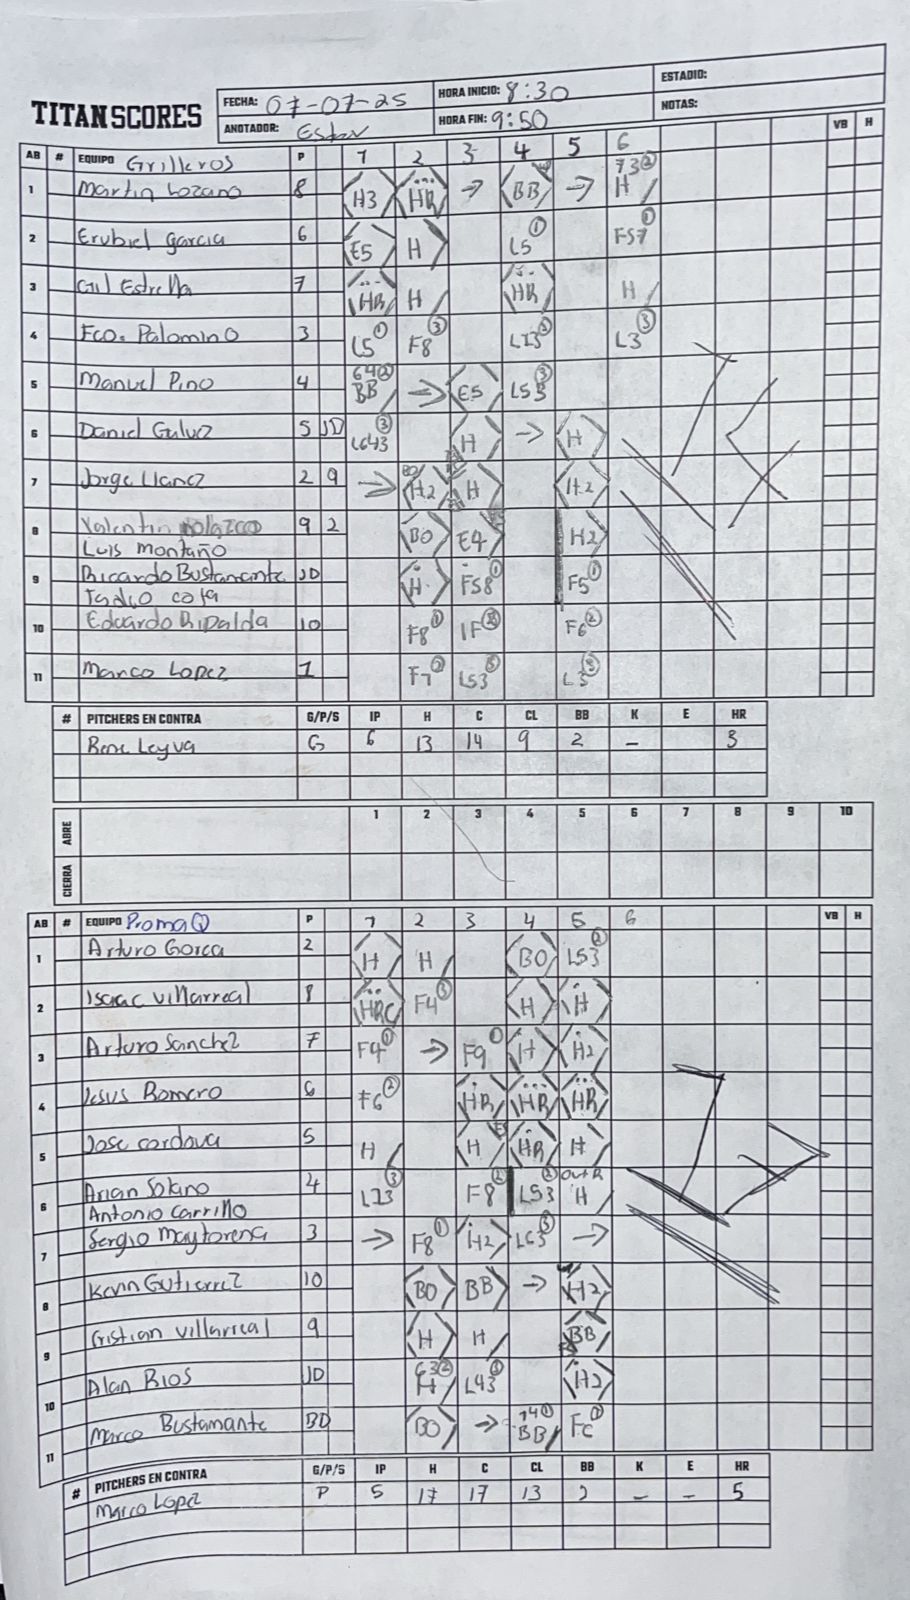 TITAN SCORES
FECHA: 07-07-25 HORA INICIO: 8:30 ESTADIO:
ANOTADOR: HORA FIN: 9:50 NOTAS:
AB # EQUIPO Grilleros P 1 2 3 4 5 6 VB H
1 Martin Lozano 8 H3 HR → BB → 73② H
2 Erubiel Garcia 6 E5 H L5① F57①
3 Gil Estrella 7 HR H HR H
4 Fco. Palomino 3 L5① F8③ L13③ L3③
5 Manuel Pino 4 64② BB → E5 L53③
6 Daniel Galvez 5 JD L643③ H → H
7 Jorge Llanez 2 9 → BO H2 H H2
8 Valentin 9 2 BO E4 H2
Luis Montaño
9 Ricardo Bustamante JD H F58① F5①
Tadeo Cota
10 Eduardo Ripalda 10 F8① IF② F6②
11 Marco Lopez 1 F7② L53③ L3③
# PITCHERS EN CONTRA G/P/S IP H C CL BB K E HR
Rene Leyva G 6 13 14 9 2 – 3
ABRE 1 2 3 4 5 6 7 8 9 10
CIERRA
AB # EQUIPO PromaQ P 1 2 3 4 5 6 VB H
1 Arturo 2 H H BO L53②
2 Isaac Villarreal 8 HRC F4③ H H
3 Arturo Sanchez 7 F4① → F9① H H2
4 Jesus Romero 6 F6② HR HR HR
5 Jose Cordova 5 H H HR H
6 Arian Solano 4 L13③ F8② L53② Out R H
Antonio Carrillo
7 Sergio Maytorena 3 → F8① H2 L63③ →
8 Kevin Gutierrez 10 BO BB → H2
9 Cristian Villarreal 9 H H BB
10 Alan Rios JD 63② H L43③ H2
11 Marco Bustamante BD BO → 14① BB FC①
# PITCHERS EN CONTRA G/P/S IP H C CL BB K E HR
Marco Lopez P 5 17 17 13 2 – – 5